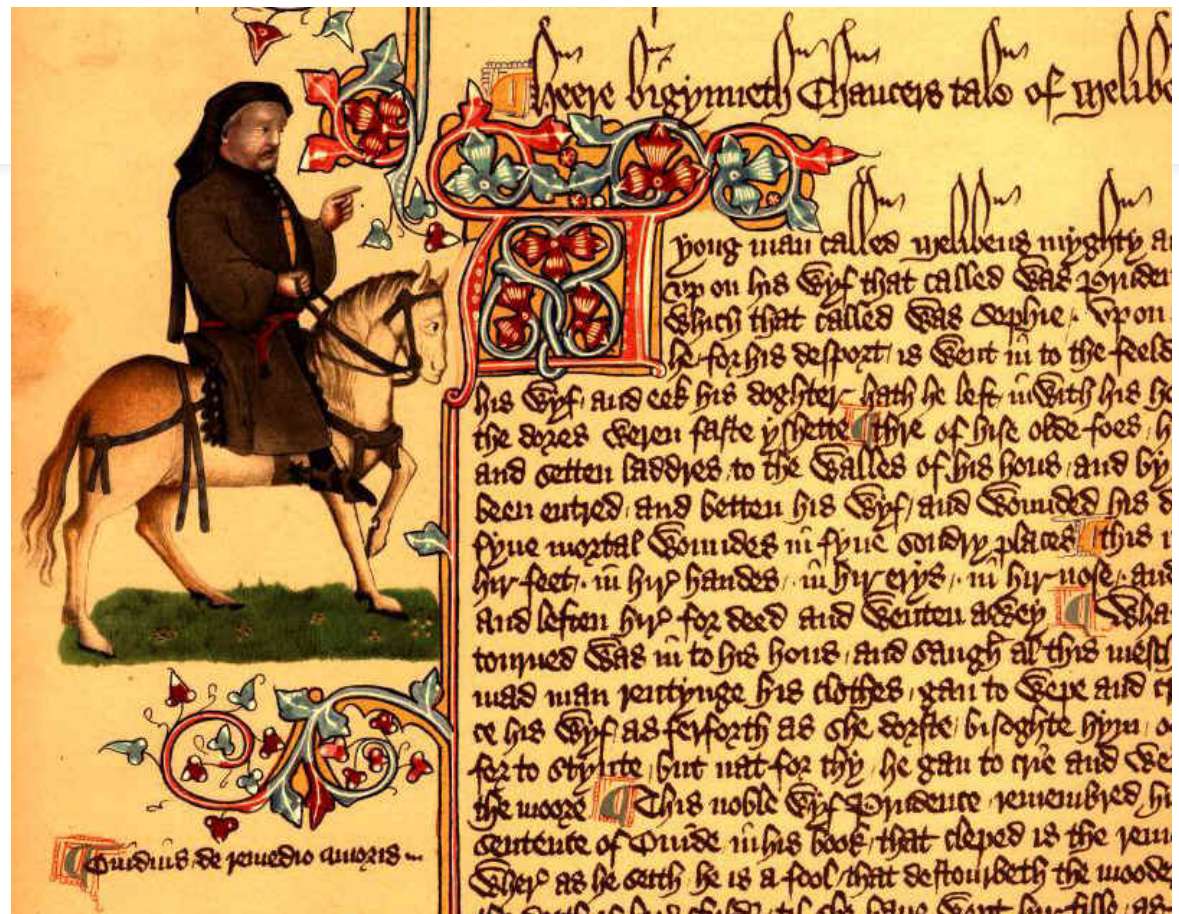 Heere bigynneth Chaucers tale of Melibe
yong man called Melibeus myghty a
vp on his wyf that called was Pruden
which that called was Sophie . Vpon
he for his desport is went in to the feeld
his wyf and eek his doghter hath he left inwith his h
the dores weren faste yshette thre of hise olde foes h
and setten laddres to the walles of his hous and by
been entred and betten his wyf and wounded his d
fyue mortal woundes in fyue sondry places this
hir feet . in hir handes . in hir erys . in hir nose . and
and leften hir for deed and wenten awey Wha
tourned was in to his hous and saugh al this mesch
mad man rentynge his clothes gan to wepe and c
ce his wyf as ferforth as she dorste bisoghte hym o
for to stynte but nat for thy he gan to crie and we
the moore This noble wyf Prudence remembred hi
sentence of Ouide in his book that cleped is the rem
Wher as he seith he is a fool that destourbeth the mooder
Ouidius de remedio amoris